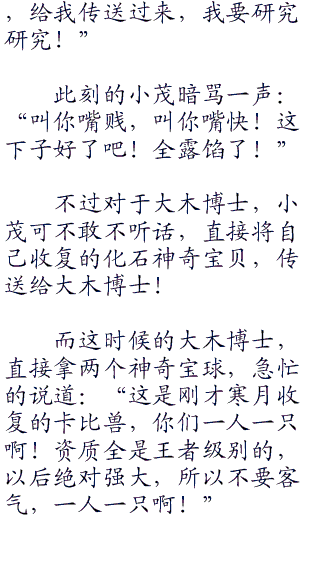 ，给我传送过来，我要研究
研究！”
此刻的小茂暗骂一声：
“叫你嘴贱，叫你嘴快！这
下子好了吧！全露馅了！”
不过对于大木博士，小
茂可不敢不听话，直接将自
己收复的化石神奇宝贝，传
送给大木博士！
而这时候的大木博士，
直接拿两个神奇宝球，急忙
的说道：“这是刚才寒月收
复的卡比兽，你们一人一只
啊！资质全是王者级别的，
以后绝对强大，所以不要客
气，一人一只啊！”